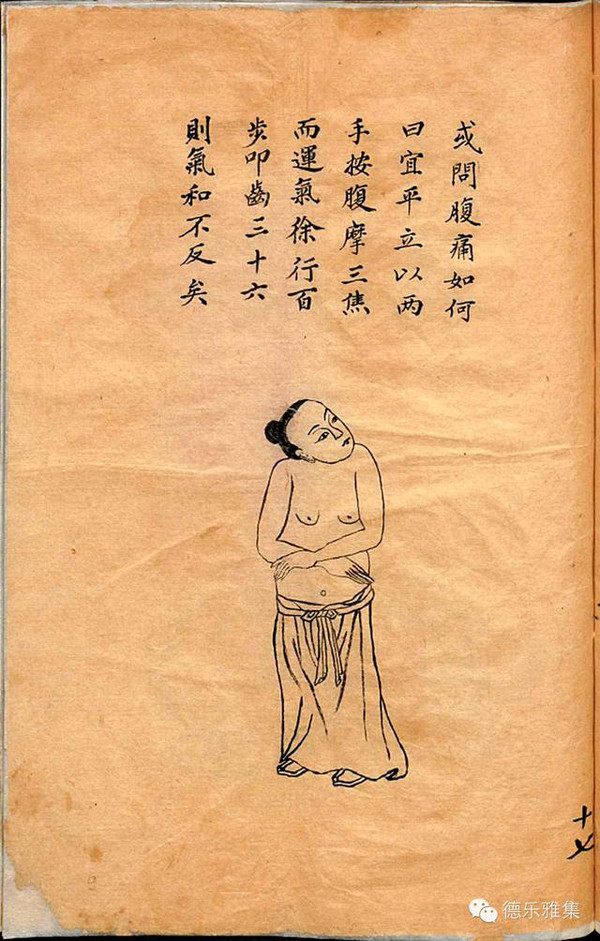 或問腹痛如何
曰宜平立以两
手按腹摩三焦
而運氣徐行百
步叩齒三十六
則氣和不反矣
十七
德乐雅集